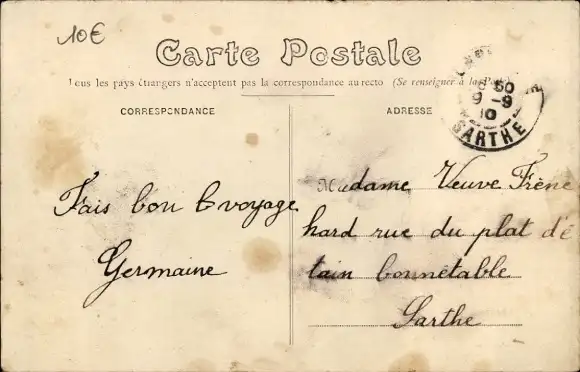 10€
Carte Postale
Tous les pays étrangers n'acceptent pas la correspondance au recto (Se renseigner à la
CORRESPONDANCE
ADRESSE
50
9 -9
10
SARTHE
Fais bon voyage
Germaine
Madame Veuve Frêne
hard rue du plat d'é
tain bonnétable
Sarthe